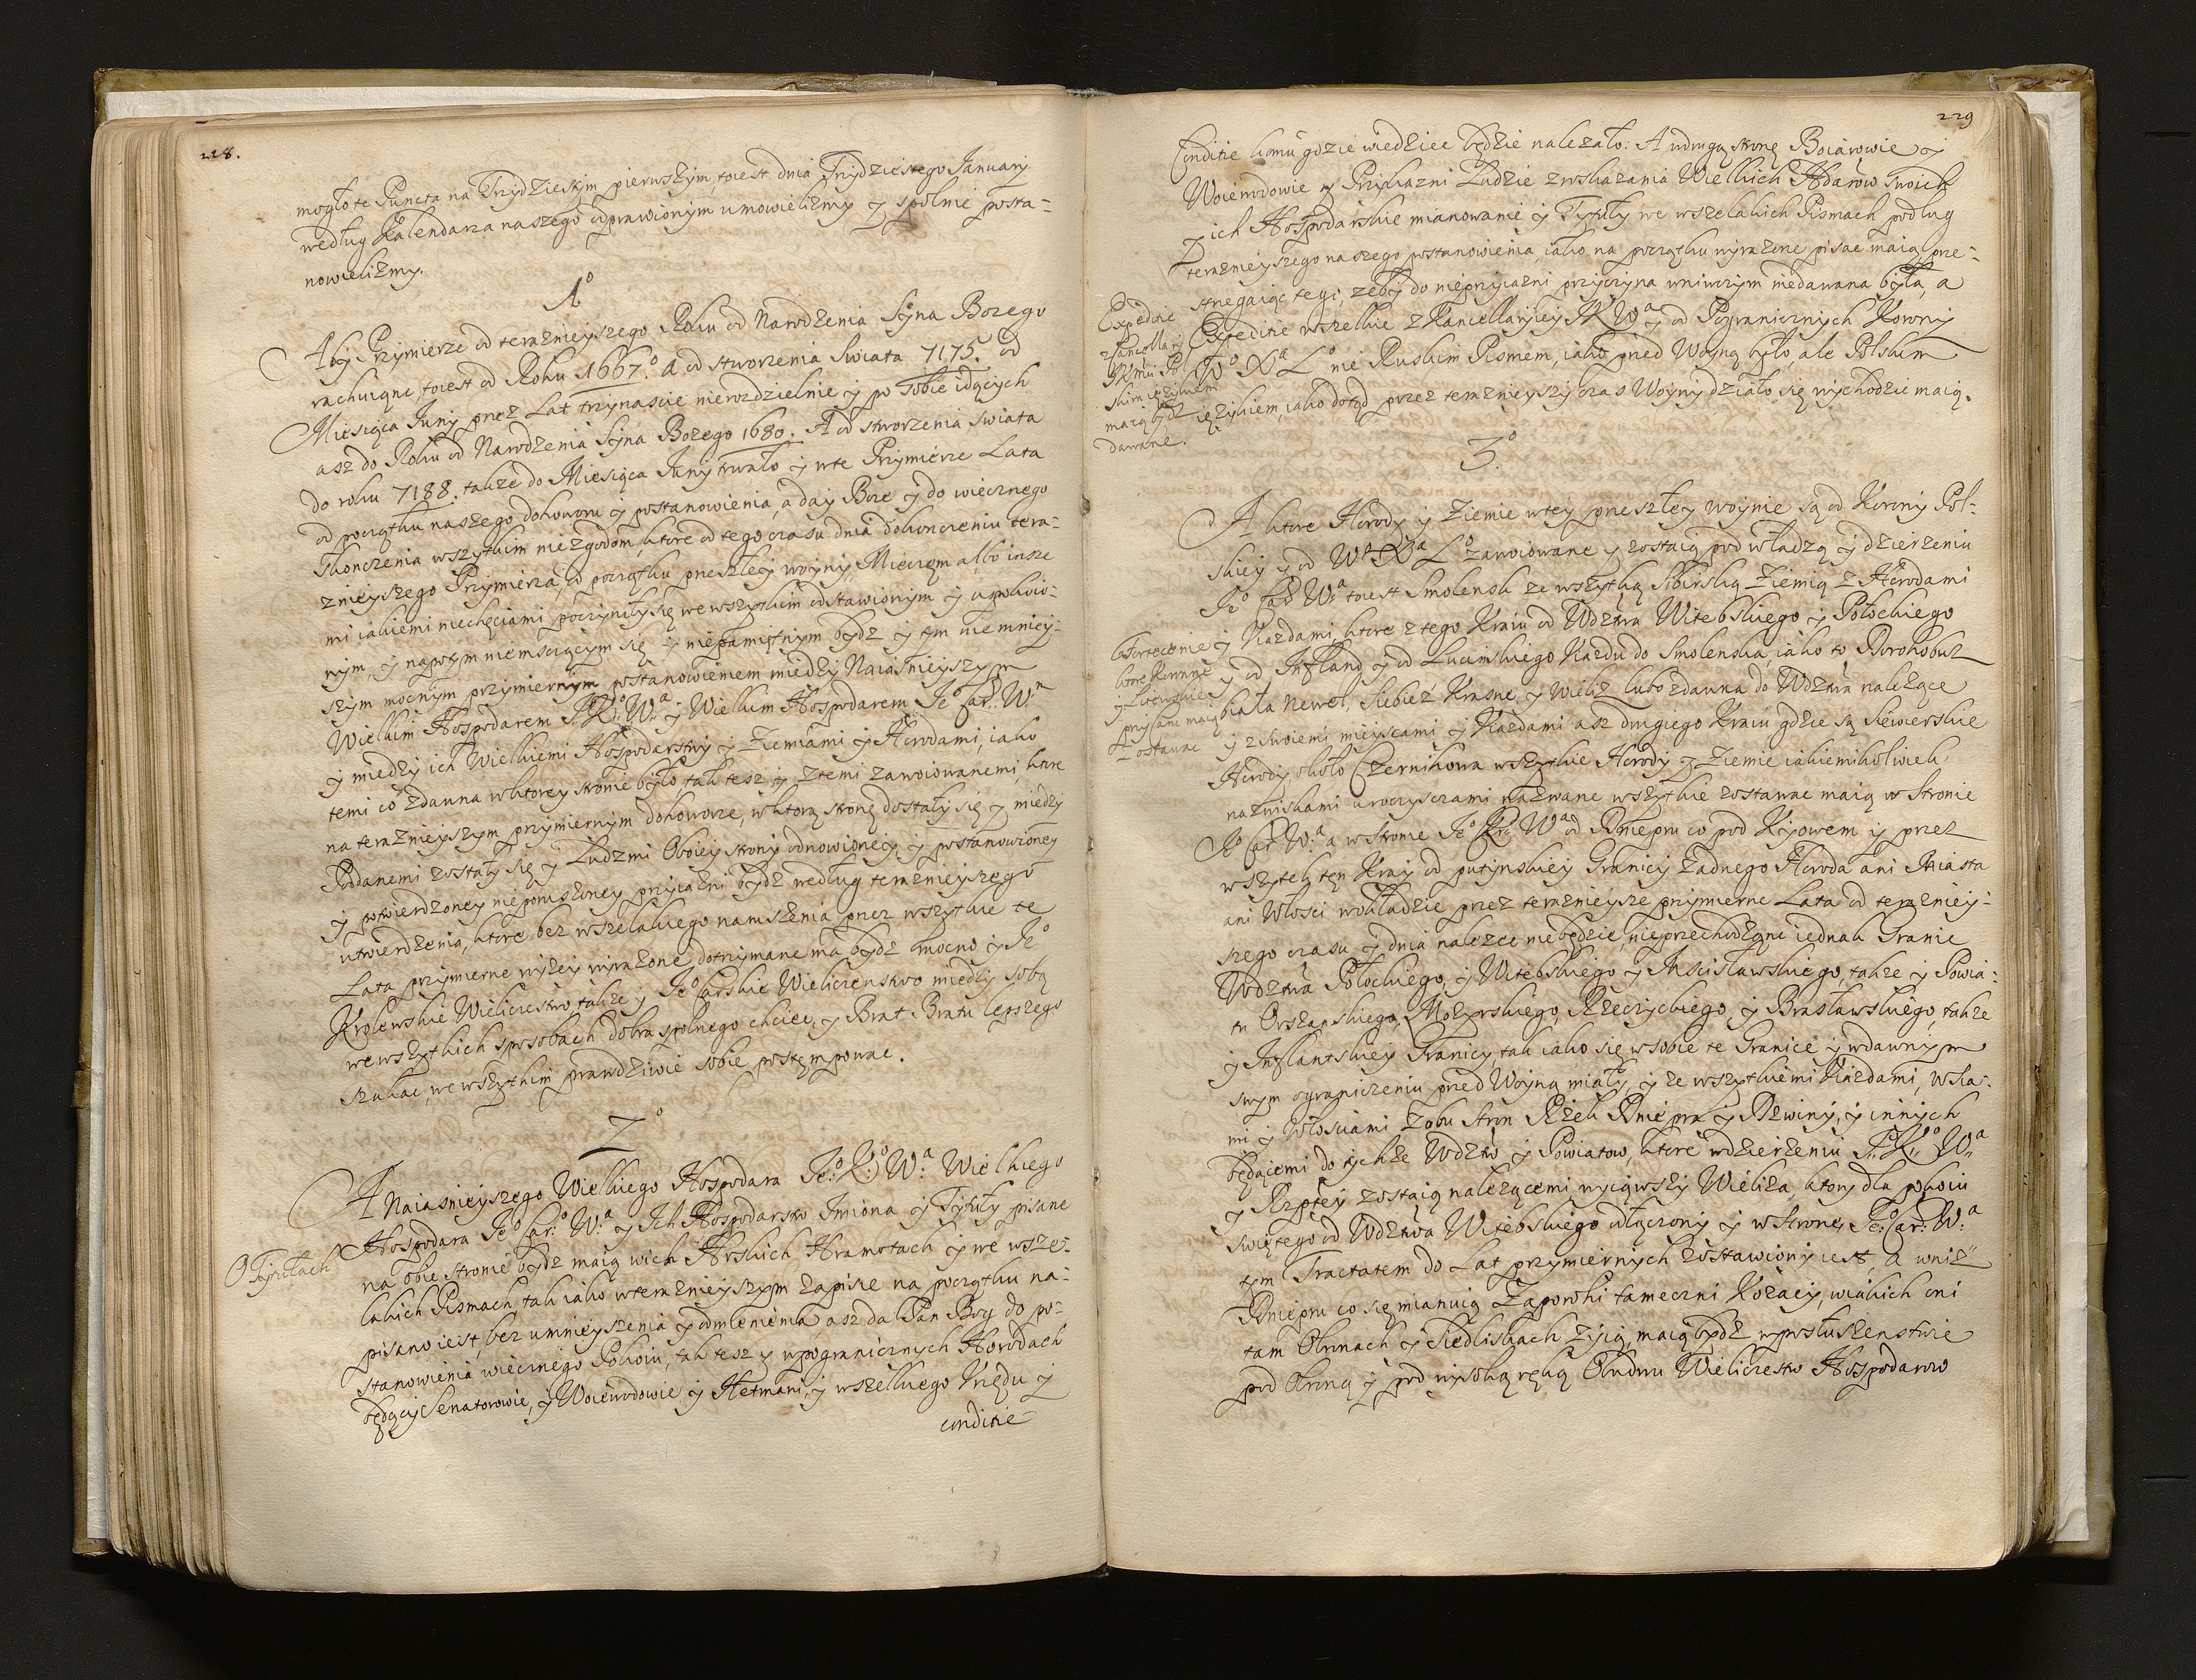 228.
mogło te Puncta na Trzydziestym pierwszym, toiest dnia Trzydziestego January
według Kalendarza naszego odprawionym umowielizmy y spolnie posta-
nowielizmy.
1o
Aby Przymierze od teraznieyszego Roku od Narodzenia Syna Bozego
rachuiąc, toiest od Roku 1667o. A od stworzenia Swiata 7175. od
Miesiąca Juny przez Lat trzynascie nierozdzielnie y po Sobie idących
asz do Roku od Narodzenia Syna Bozego 1680. A od stworzenia swiata
do roku 7188. takze do Miesiąca Juny trwało y w te Przymierze Lata
od początku naszego dokonczu y postanowienia, a day Boze y do wiecznego
skonczenia wszytkim niezgodom, ktore od tego czasu dnia dokonczeniu tera-
znieyszego Przymierza, od początku przeszłey woyny, Mieczem albo insze
mi iakiemi niechęciami poczyniły się we wszytkim odstawionym y uspokoio-
nym, y napotym niemszczącym się y niepamiętnym bydz y tym niemniey-
szym mocnym przymiernym postanowieniem miedzy Naiasnieyszym
Wielkim Hospodarem J. Ko Wa y Wielkim Hospodarem Jeo Car. Wa
y miedzy ich Wielkiemi Hospodarstwy y Ziemiami y Horodami, iako
temi co zdawna w ktorey stronie było, tak tesz y z temi zawoiowanemi, ktore
na teraznieyszym przymiernym dohoworze, w ktorą stronę dostały się y miedzy
Poddanemi zostały się y Ludzmi Oboiey strony odnowioney y postanowioney
y potwierdzoney nieporuszoney przyiazni bydz według teraznieyszego
utwierdzenia, ktore bez wszelakiego naruszenia przez wszytkie te
Lata przymierne wyzey wyrazone dotrzymane ma bydz mocno y Jeo
Krolewskie Wieliczestwo, takze y Jeo Carskie Wieliczenstwo miedzy sobą
we wszytkich sposobach dobra spolnego chciec, y Brat Bratu lepszego
szukac, we wszytkim prawdziwie sobie postępowac.
2o
A Naiasnieyszego Wielkiego Hospodara Jeo Ko Wa. Wielkiego
Hospodara Jeo Caro Wa y Ich Hospodarstw Imiona y Tytuły pisane
O Tytułach
na obie stronie bydz maią w ich Hrskich Hramotach y we wsze-
lakich Pismach, tak iako w teraznieyszym zapisie na początku na-
pisano iest, bez umnieyszenia y odmienienia, asz da Pan Bog do po-
stanowienia wiecznego Pokoiu, tak tesz y w pogranicznych Horodach
będący Senatorowie, y Woiewodowie y Hetmani, y wszelkiego Urzędu y
conditie
229
Conditie komu gdzie wiedziec będzie nalezało: A w drugą stronę Boiarowie y
Woiewodowie y Prykazni Ludzie z wskazania Wielkich Hdarow swoich
y ich Hospodarskie mianowanie y Tytuły we wszelakich Pismach podług
teraznieyszego naszego postanowienia, iako na początku wyrazone pisac maią, prze-
strzegaiąc tego, zeby do nieprzyiazni przyczyna w niwczym niedawana była, a
Expeditie
z Kancellary
JKMci Pol
skim ięzykiem
maią bydz
dawane.
Expeditie wszelkie z Kancellaryiey JK Wa y od Pogranicznych Korony
y Wo Xa Lo nie Ruskim Pismem, iako przed Woyną było, ale Polskim
ięzykiem, iako dotąd przez teraznieyszy czas Woyny działo się wychodzic maią.
3o
A ktore Horody y Ziemie w tey przeszłey woynie są od Korony Pol-
skiey y od Wo Xa Lo zawoiowane y zostaią pod władzą y dzierzeniu
Jeo Car Wa toiest Smolensk ze wszytką Sibirską Ziemią z Horodami
y Uiazdami, ktore z tego Kraiu od Wdztwa Witebskiego y Połockiego
y od Infland y od Lucinskiego Uazdu do Smolenska, iako to Dorohobuz
ktore Koronne
przysłane maią
zostawac
biała Newel, Siebiez, Krasne, y Wieliz lubo zdawna do Wdztwa nalezące
y z swoiemi mieyscami y Uiazdami asz drugiego Kraiu gdzie są Siewierskie
Horody około Czernihowa wszytkie Horody y Ziemie iakiemikolwiek
nazwiskami uroczysczami nazwane wszytkie zostawac maią w Stronie
Jo Car Wa a w stronie Jeo Kro Wa od Dniepru co pod Kijowem y przez
wszytek ten Kray od putywskiey Granicy zadnego Horoda ani Miasta
ani Włosci w władzie przez teraznieysze przymierne Lata od terazniey-
szego czasu y dnia nalezec niebędzie, nieprzechodząc iednak Granic
Wdztwa Połockiego, y Witebskiego y Mscisławskiego, takze y Powia-
tu Orszanskiego, Mozyrskiego, Rzeczyckiego, y Brasławskiego, takze
y Inflantskiey Granicy tak iako się w sobie te Granice y w dawnym
swym ograniczeniu przed Woyną miały, y ze wszytkiemi Uiazdami, Wsia-
mi y Włosciami z obu stron Rzek Dniepra y Dzwiny, y innych
będącemi do tychze Wdztw y Powiatow, ktore w dzierzeniu J. Ko Wa
y Rzptey zostaią nalezącemi, wyiąwszy Wieliza, ktory dla pokoiu
swiętego od Wdztwa Witebskiego odłączony y w Stronę Jeo Car. Wa
tym Tractatem do Lat przymiernych zostawiony iest, a wniz
Dniepru co się mianuią Zaporohi tameczni Kozacy, w iakich oni
tam Obronach y Siedliskach zyią, maią bydz w posłuszenstwie
pod Obroną y pod wysoką ręką Obudwu Wieliczestw Hospodarow